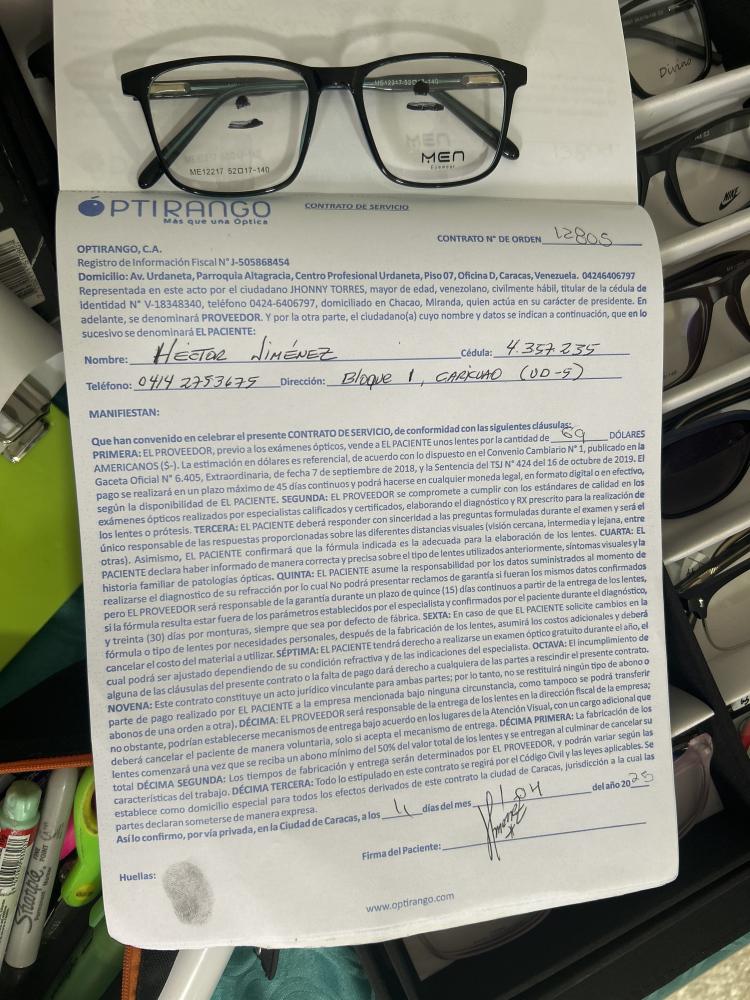 Divino
ME12217 52□17-140
MEN
Eyewear
ME12217 52□17-140
NIKE
ÓPTIRANGO
Más que una Óptica
CONTRATO DE SERVICIO
CONTRATO N° DE ORDEN 12805
OPTIRANGO, C.A.
Registro de Información Fiscal N° J-505868454
Domicilio: Av. Urdaneta, Parroquia Altagracia, Centro Profesional Urdaneta, Piso 07, Oficina D, Caracas, Venezuela. 04246406797
Representada en este acto por el ciudadano JHONNY TORRES, mayor de edad, venezolano, civilmente hábil, titular de la cédula de
identidad N° V-18348340, teléfono 0424-6406797, domiciliado en Chacao, Miranda, quien actúa en su carácter de presidente. En
adelante, se denominará PROVEEDOR. Y por la otra parte, el ciudadano(a) cuyo nombre y datos se indican a continuación, que en lo
sucesivo se denominará EL PACIENTE:
Nombre: HÉCTOR JIMÉNEZ Cédula: 4.357.235
Teléfono: 0414 2753675 Dirección: Bloque 1, CARICUAO (UD-5)
MANIFIESTAN:
Que han convenido en celebrar el presente CONTRATO DE SERVICIO, de conformidad con las siguientes cláusulas:
PRIMERA: EL PROVEEDOR, previo a los exámenes ópticos, vende a EL PACIENTE unos lentes por la cantidad de 69 DÓLARES
AMERICANOS ($-). La estimación en dólares es referencial, de acuerdo con lo dispuesto en el Convenio Cambiario N° 1, publicado en la
Gaceta Oficial N° 6.405, Extraordinaria, de fecha 7 de septiembre de 2018, y la Sentencia del TSJ N° 424 del 16 de octubre de 2019. El
pago se realizará en un plazo máximo de 45 días continuos y podrá hacerse en cualquier moneda legal, en formato digital o en efectivo,
según la disponibilidad de EL PACIENTE. SEGUNDA: EL PROVEEDOR se compromete a cumplir con los estándares de calidad en los
exámenes ópticos realizados por especialistas calificados y certificados, elaborando el diagnóstico y RX prescrito para la realización de
los lentes o prótesis. TERCERA: EL PACIENTE deberá responder con sinceridad a las preguntas formuladas durante el examen y será el
único responsable de las respuestas proporcionadas sobre las diferentes distancias visuales (visión cercana, intermedia y lejana, entre
otras). Asimismo, EL PACIENTE confirmará que la fórmula indicada es la adecuada para la elaboración de los lentes. CUARTA: EL
PACIENTE declara haber informado de manera correcta y precisa sobre el tipo de lentes utilizados anteriormente, síntomas visuales y la
historia familiar de patologías ópticas. QUINTA: EL PACIENTE asume la responsabilidad por los datos suministrados al momento de
realizarse el diagnostico de su refracción por lo cual No podrá presentar reclamos de garantía si fueran los mismos datos confirmados
pero EL PROVEEDOR será responsable de la garantía durante un plazo de quince (15) días continuos a partir de la entrega de los lentes,
si la fórmula resulta estar fuera de los parámetros establecidos por el especialista y confirmados por el paciente durante el diagnóstico,
y treinta (30) días por monturas, siempre que sea por defecto de fábrica. SEXTA: En caso de que EL PACIENTE solicite cambios en la
fórmula o tipo de lentes por necesidades personales, después de la fabricación de los lentes, asumirá los costos adicionales y deberá
cancelar el costo del material a utilizar. SÉPTIMA: EL PACIENTE tendrá derecho a realizarse un examen óptico gratuito durante el año, el
cual podrá ser ajustado dependiendo de su condición refractiva y de las indicaciones del especialista. OCTAVA: El incumplimiento de
alguna de las cláusulas del presente contrato o la falta de pago dará derecho a cualquiera de las partes a rescindir el presente contrato.
NOVENA: Este contrato constituye un acto jurídico vinculante para ambas partes; por lo tanto, no se restituirá ningún tipo de abono o
parte de pago realizado por EL PACIENTE a la empresa mencionada bajo ninguna circunstancia, como tampoco se podrá transferir
abonos de una orden a otra). DÉCIMA: EL PROVEEDOR será responsable de la entrega de los lentes en la dirección fiscal de la empresa;
no obstante, podrían establecerse mecanismos de entrega bajo acuerdo en los lugares de la Atención Visual, con un cargo adicional que
deberá cancelar el paciente de manera voluntaria, solo si acepta el mecanismo de entrega. DÉCIMA PRIMERA: La fabricación de los
lentes comenzará una vez que se reciba un abono mínimo del 50% del valor total de los lentes y se entregan al culminar de cancelar su
total DÉCIMA SEGUNDA: Los tiempos de fabricación y entrega serán determinados por EL PROVEEDOR, y podrán variar según las
características del trabajo. DÉCIMA TERCERA: Todo lo estipulado en este contrato se regirá por el Código Civil y las leyes aplicables. Se
establece como domicilio especial para todos los efectos derivados de este contrato la ciudad de Caracas, jurisdicción a la cual las
partes declaran someterse de manera expresa.
Así lo confirmo, por vía privada, en la Ciudad de Caracas, a los 11 días del mes 04 del año 2025
Firma del Paciente:
Huellas:
www.optirango.com
Sharpie
FINE
POINT